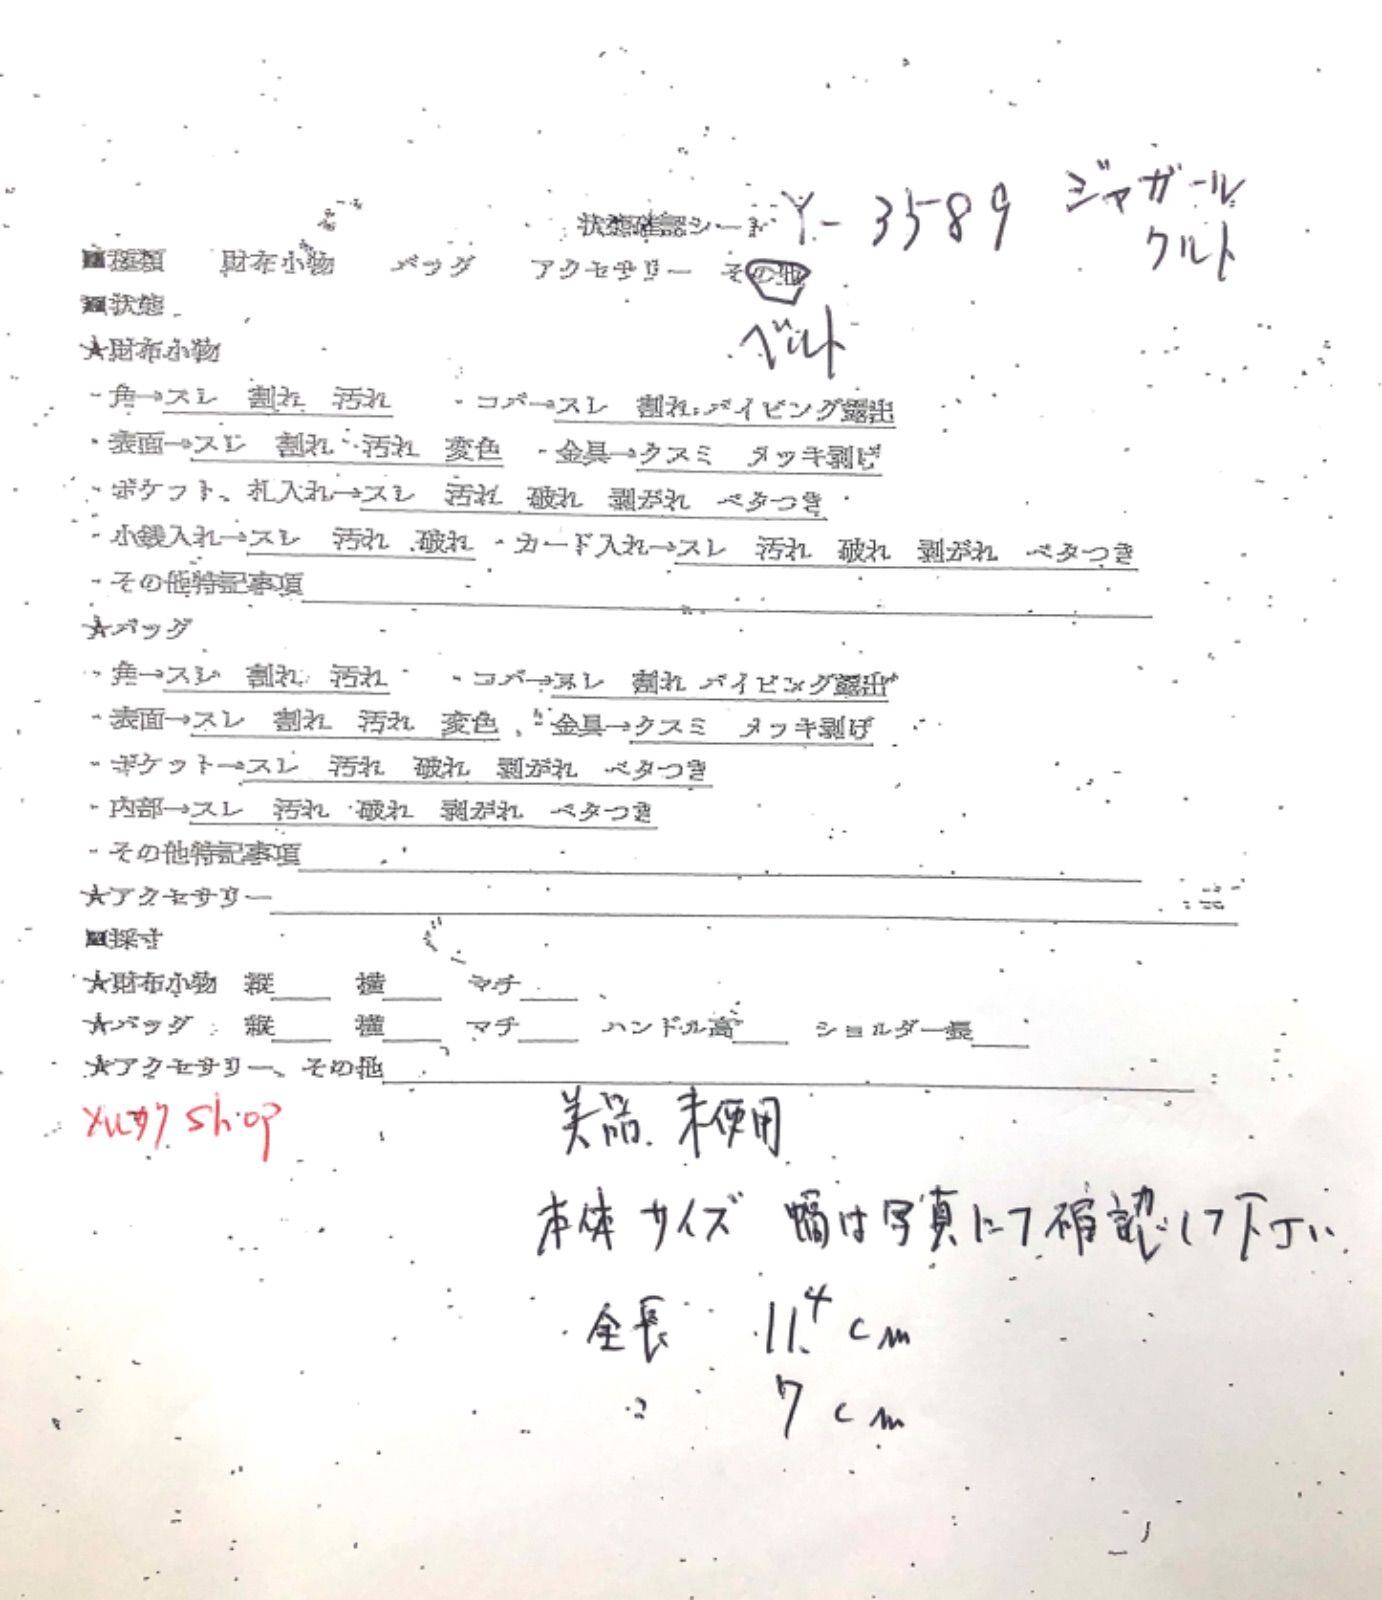 状態確認シート Y-3589 ジャガール
クルト
■種類 財布小物 バッグ アクセサリー その他
■状態
ベルト
★財布小物
・角→スレ 割れ 汚れ ・コバ→スレ 割れ パイピング露出
・表面→スレ 割れ 汚れ 変色 ・金具→クスミ メッキ剥げ
・ポケット、札入れ→スレ 汚れ 破れ 剥がれ ベタつき
・小銭入れ→スレ 汚れ 破れ ・カード入れ→スレ 汚れ 破れ 剥がれ ベタつき
・その他特記事項
★バッグ
・角→スレ 割れ 汚れ ・コバ→スレ 割れ パイピング露出
・表面→スレ 割れ 汚れ 変色 ・金具→クスミ メッキ剥げ
・ポケット→スレ 汚れ 破れ 剥がれ ベタつき
・内部→スレ 汚れ 破れ 剥がれ ベタつき
・その他特記事項
★アクセサリー
■採寸
★財布小物 縦 横 マチ
★バッグ 縦 横 マチ ハンドル高 ショルダー長
★アクセサリー、その他
shop 美品 未使用
本体サイズ 幅は写真にて確認して下さい
全長 11.4cm
〃 7cm